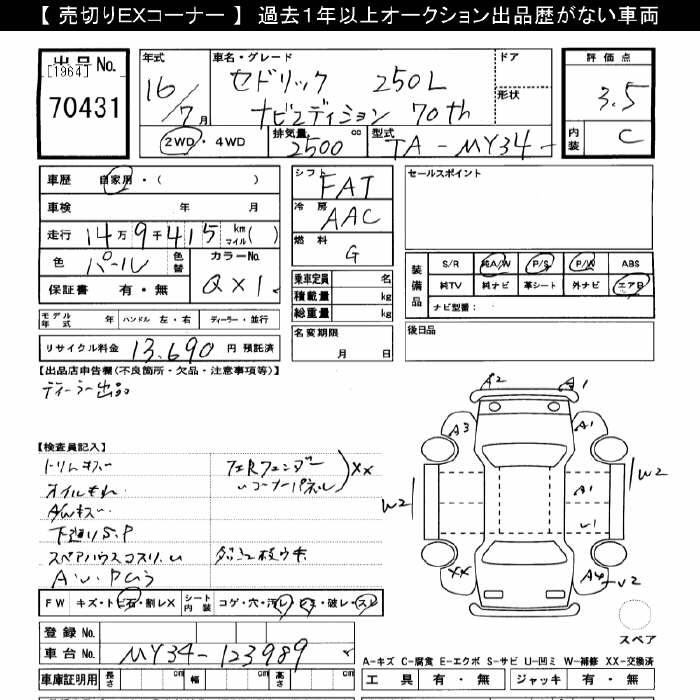 【 売切りEXコーナー 】 過去１年以上オークション出品歴がない車両
出品No.
[1964]
70431
年式
16/7月
車名・グレード
セドリック 250L
ナビエディション 70th
ドア
形状
2WD・4WD
排気量 2500 cc
型式 TA-MY34-
評価点
3.5
内装 C
車歴 自家用・( )
車検 年 月
走行 14万9千415 km マイル( )
色 パール 色替
カラーNo. QX1
保証書 有・無
シフト FAT
冷房 AAC
燃料 G
乗車定員 名
積載量 kg
総重量 kg
セールスポイント
装備品
S/R 純A/W P/S P/W ABS
純TV 純ナビ 革シート 外ナビ エアB
ナビ型番:
モデル年式 年 ハンドル 左・右 ディーラー・並行
名変期限 月 日
後日品
リサイクル料金 13,690 円 預託済
【出品店申告欄(不良箇所・欠品・注意事項等)】
ディーラー出品
【検査員記入】
トリムキズ
オイルもれ
下廻りS.P
フェRフェンダー
コーナーパネル
XX
FW キズ・トビ石・割レX
シート内装 コゲ・穴・汚レ・シミ・破レ・スレ
A2
A1
A3
A1
A1
U1
W2
W2
XX
A4
U2
スペア
登録No.
車台No. MY34-123989
A-キズ C-腐食 E-エクボ S-サビ U-凹ミ W-補修 XX-交換済
車庫証明用 長さ cm 幅 cm 高さ cm
工具 有・無 ジャッキ 有・無